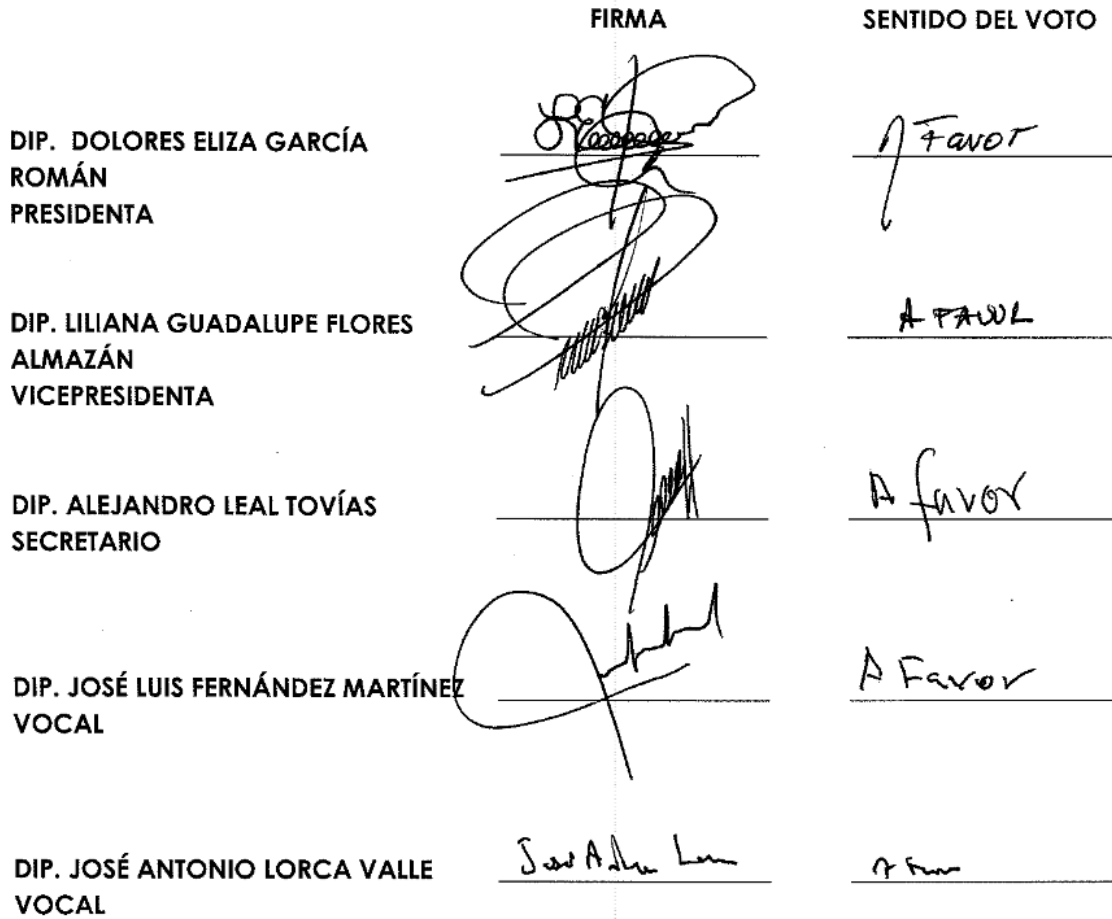 FIRMA SENTIDO DEL VOTO
DIP. DOLORES ELIZA GARCÍA
ROMÁN
PRESIDENTA
A Favor
DIP. LILIANA GUADALUPE FLORES
ALMAZÁN
VICEPRESIDENTA
A FAVOR
DIP. ALEJANDRO LEAL TOVÍAS
SECRETARIO
A favor
DIP. JOSÉ LUIS FERNÁNDEZ MARTÍNEZ
VOCAL
A Favor
DIP. JOSÉ ANTONIO LORCA VALLE
VOCAL